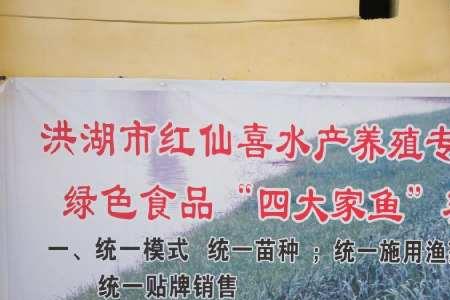 洪湖市红仙喜水产养殖专
绿色食品“四大家鱼”
一、统一模式 统一苗种；统一施用渔
统一贴牌销售